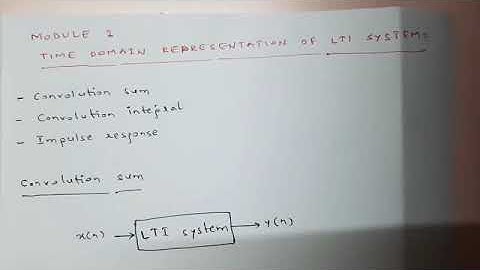 MODULE 2
TIME DOMAIN REPRESENTATION OF LTI SYSTEMS
- Convolution sum
- Convolution integral
- Impulse response
Convolution sum
x(n) → LTI system → y(n)